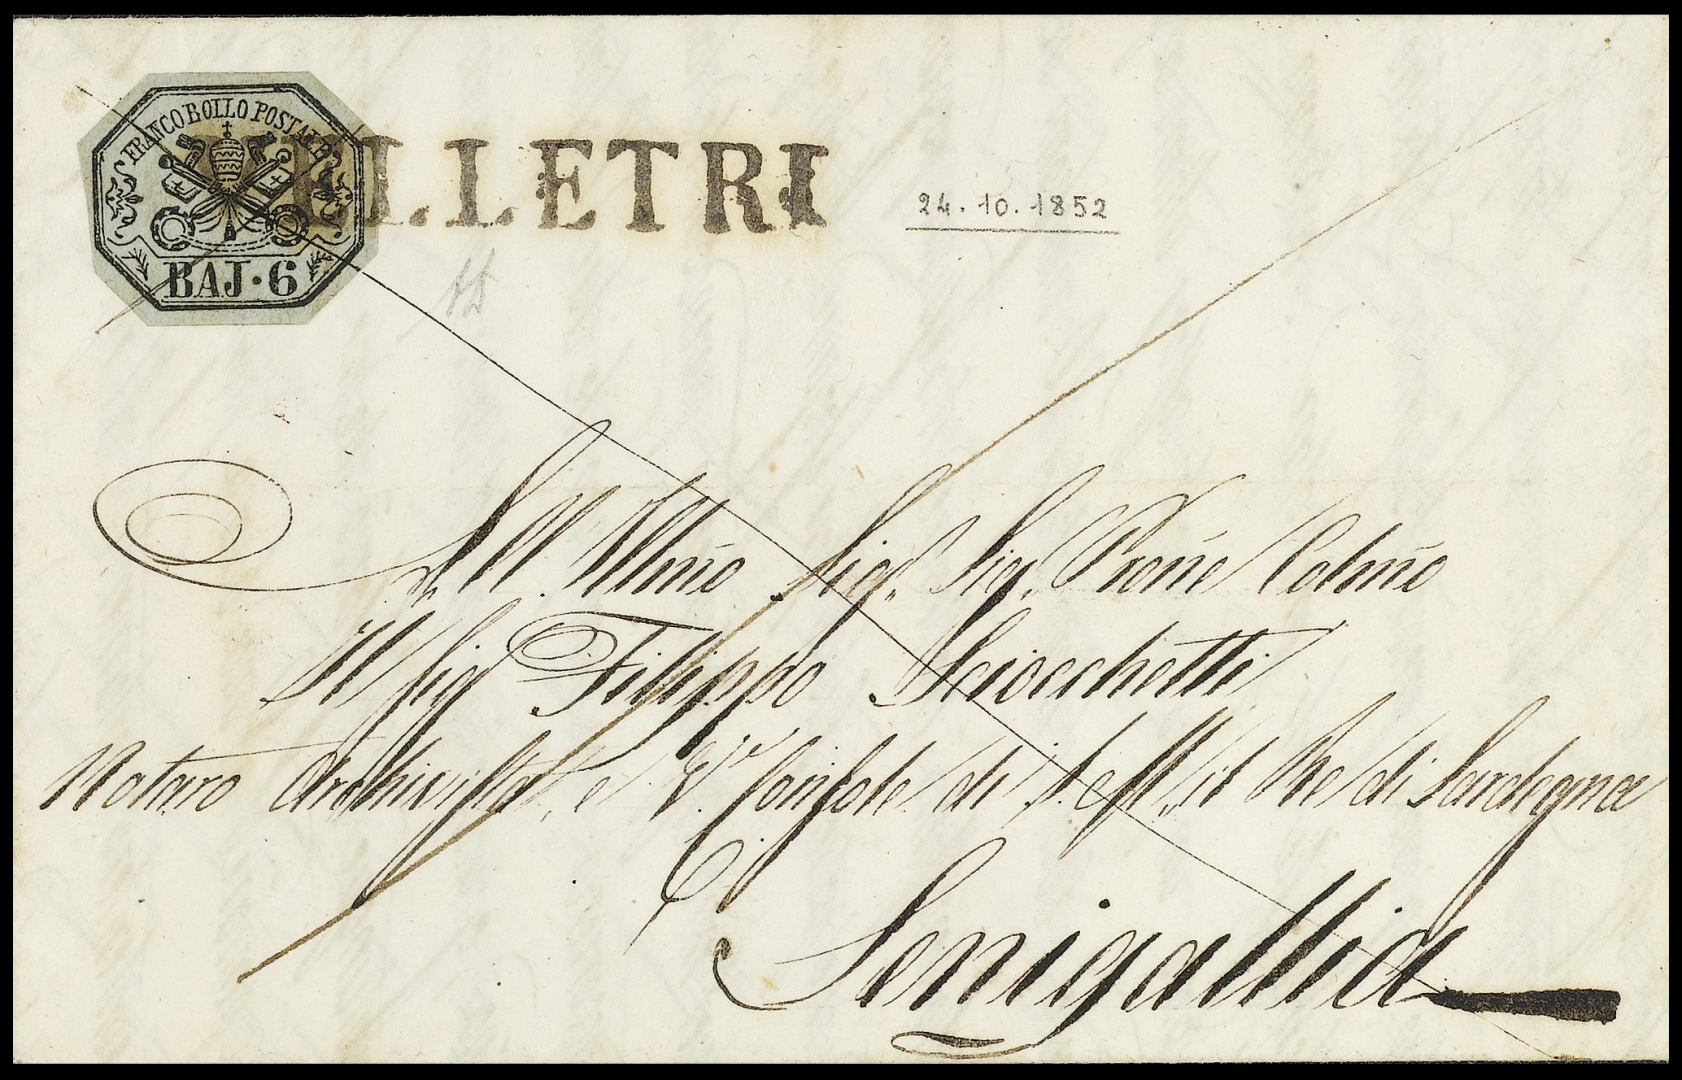 FRANCO BOLLO POSTALE
BAJ·6
VELLETRI
24.10.1852
All Illmo Sig. Sig. Prone Colmo
Il Sig Filippo Sciocchetti
Notaro Archivista, e V. Console di S. M. il Re di Sardegna
Senigallia